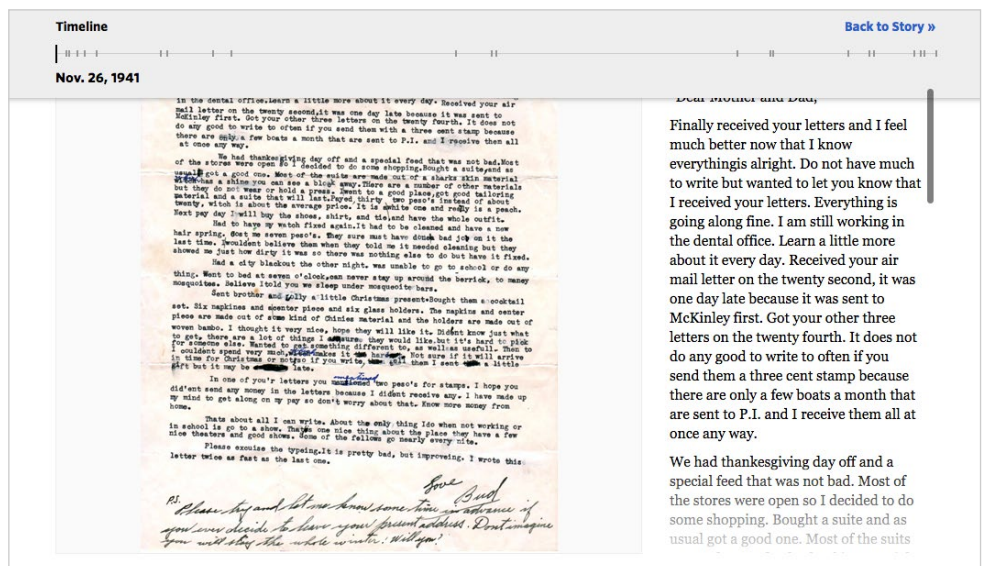 Timeline
Back to Story »
Nov. 26, 1941
in the dental office.Learn a little more about it every day. Received your air
mail letter on the twenty second,it was one day late because it was sent to
McKinley first. Got your other three letters on the twenty fourth. It does not
do any good to write to often if you send them with a three cent stamp because
there are only a few boats a month that are sent to P.I. and I receive them all
at once any way.
We had thanksgiving day off and a special feed that was not bad.Most
of the stores were open so I decided to do some shopping.Bought a suite,and as
usual got a good one. Most of the suite are made out of a sharks skin material
has a shine you can see a block away.There are a number of other materials
but they do not wear or hold a press. Iwent to a good place,got good tailoring
material and a suite that will last.Payed,thirty two peso's instead of about
twenty, witch is about the average price. It is awhite one and really is a peach.
Next pay day I will buy the shoes, shirt, and tie,and have the whole outfit.
Had to have my watch fixed again.It had to be cleaned and have a new
hair spring. Cost me seven peso's. They sure must have done a bad job on it the
last time. Iwouldent believe them when they told me it needed cleaning but they
showed me just how dirty it was so there was nothing else to do but have it fixed.
Had a city blackout the other night. was unable to go to school or do any
thing. Went to bed at seven o'clock,can never stay up around the berrick, to maney
mosquitoes. Believe Itold you we sleep under mosqueite bars.
Sent brother and golly a little Christmas present.Bought them a cocktail
set. Six napkines and a center piece and six glass holders. The napkins and center
piece are made out of some kind of Chinies material and the holders are made out of
woven bambo. I thought it very nice, hope they will like it. Didnt know just what
to get, there are a lot of things I they would like.but it's hard to pick
for someone else. Wanted to get something different to, as well as usefull. Then to
I couldent spend very much, makes it Not sure if it will arrive
in time for Christmas or not,so if you write, them I sent a little
gift but it may be late.
mentioned
In one of you'r letters you two peso's for stamps. I hope you
did'ent send any money in the letters because I dident receive any. I have made up
my mind to get along on my pay so don't worry about that. Know more money from
home.
Thats about all I can write. About the only thing Ido when not working or
in school is go to a show. Thats one nice thing about the place they have a few
nice theaters and good shows. Some of the fellows go nearly every nite.
Please excuise the typeing.It is pretty bad, but improveing. I wrote this
letter twice as fast as the last one.
Love
Bud
P.S. Please try and let me know some time in advance if
you ever decide to leave your present address. Dont imagine
you will stay the whole winter. Will you?
Dear Mother and Dad,
Finally received your letters and I feel
much better now that I know
everythingis alright. Do not have much
to write but wanted to let you know that
I received your letters. Everything is
going along fine. I am still working in
the dental office. Learn a little more
about it every day. Received your air
mail letter on the twenty second, it was
one day late because it was sent to
McKinley first. Got your other three
letters on the twenty fourth. It does not
do any good to write to often if you
send them a three cent stamp because
there are only a few boats a month that
are sent to P.I. and I receive them all at
once any way.
We had thankesgiving day off and a
special feed that was not bad. Most of
the stores were open so I decided to do
some shopping. Bought a suite and as
usual got a good one. Most of the suits